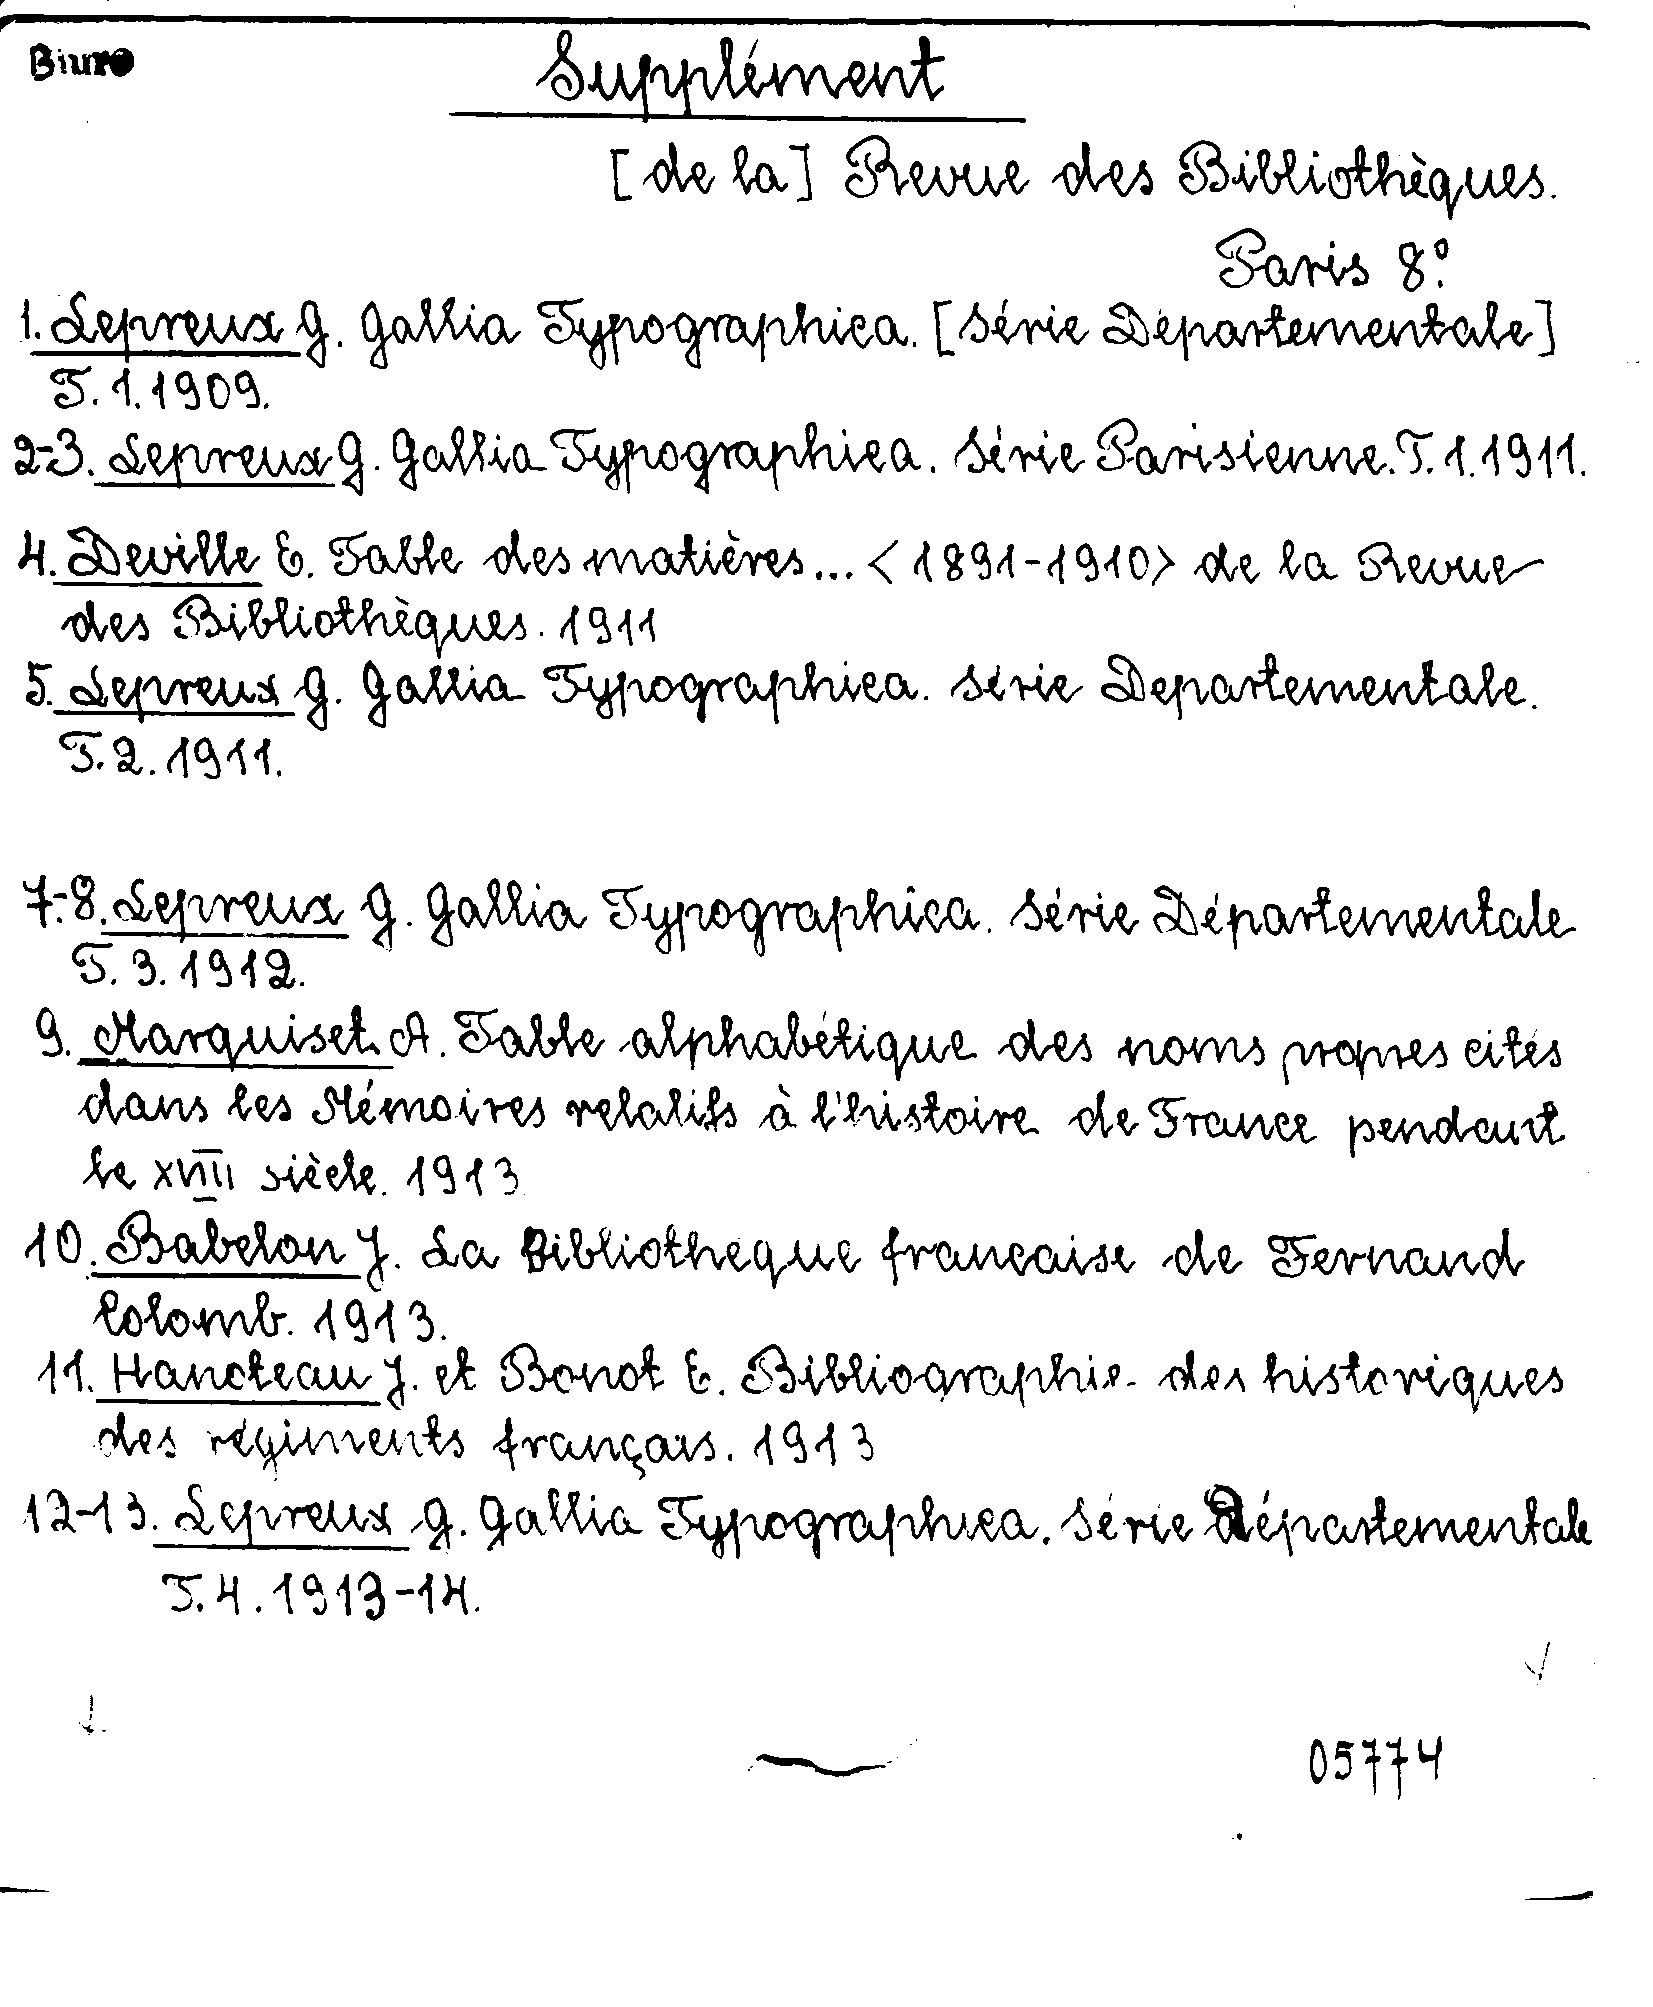 Biuro
Supplément
[de la] Revue des Bibliothèques.
Paris 8º
1. Lepreux G. Gallia Typographica. [Série Départementale]
T. 1. 1909.
2-3. Lepreux G. Gallia Typographica. Série Parisienne. T. 1. 1911.
4. Deville E. Table des matières... <1891-1910> de la Revue
des Bibliothèques. 1911
5. Lepreux G. Gallia Typographica. Série Departementale.
T. 2. 1911.
7-8. Lepreux G. Gallia Typographica. Série Départementale
T. 3. 1912.
9. Marquiset A. Table alphabétique des noms propres cités
dans les Mémoires relatifs à l'histoire de France pendant
le XVIII siècle. 1913
10. Babelon J. La Bibliotheque francaise de Fernand
Colomb. 1913.
11. Hanoteau J. et Bonot E. Bibliographie des historiques
des régiments français. 1913
12-13. Lepreux G. Gallia Typographica. Série Départementale
T. 4. 1913-14.
05774